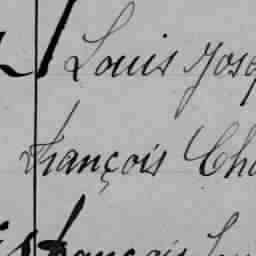 Louis Jose
François Cha
François